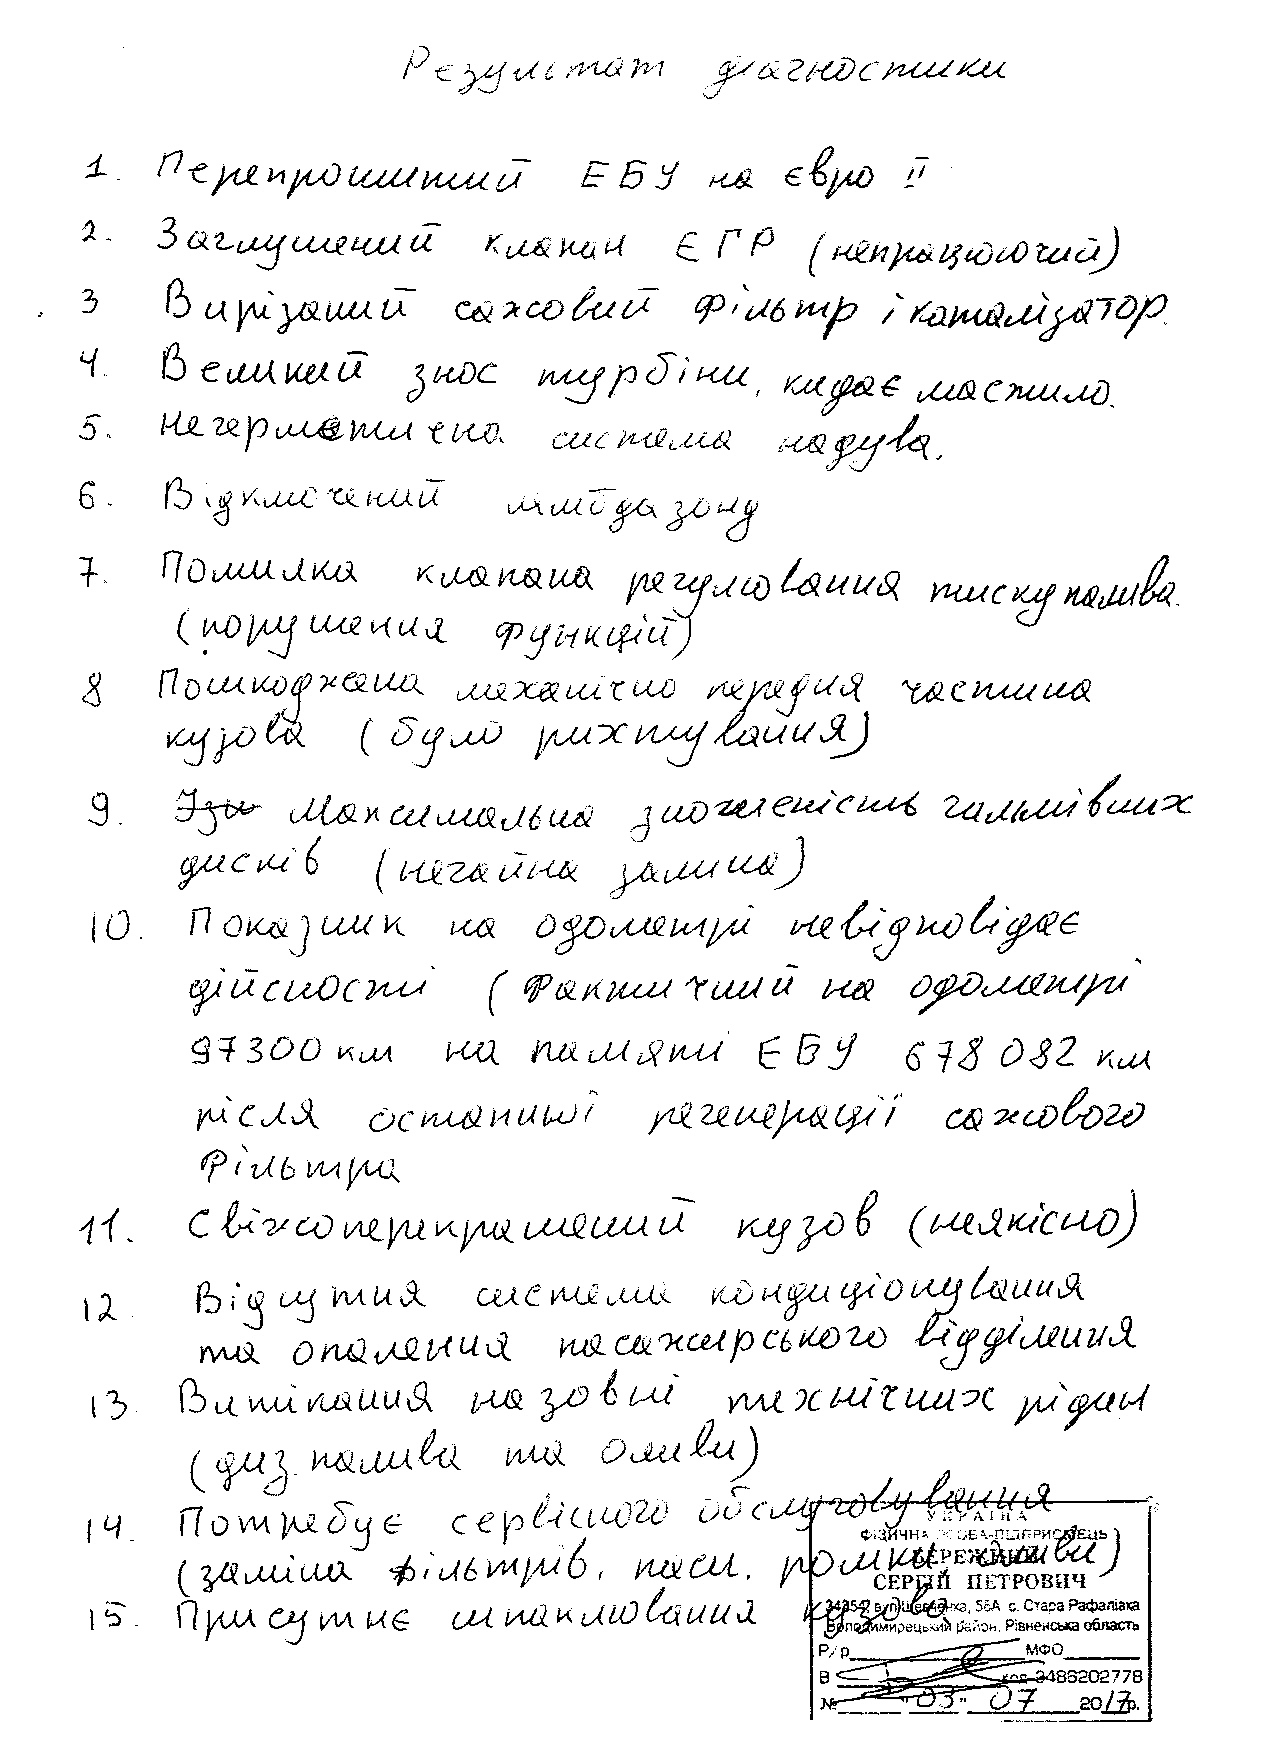 Результат діагностики
1. Перепрошитий ЕБУ на євро II
2. Заглушений клапан ЕГР (непрацюючий)
3 Вирізаний сажовий фільтр і каталізатор.
4. Великий знос турбіни, кидає мастило.
5. Негерметична система надува.
6. Відключений лямбда зонд
7. Помилка клапана регулювання тиску палива.
(порушення функцій)
8 Пошкоджена механічно передня частина
кузова (було рихтування)
9. Максимальна зношеність гальмівних
дисків (негайна заміна)
10. Показник на одометрі невідповідає
дійсності (Фактичний на одометрі
97300 км на памяті ЕБУ 678 082 км
після останньої регенерації сажового
фільтра
11. Свіжоперекрашений кузов (неякісно)
12. Відсутня система кондиціонування
та опалення пасажирського відділення
13. Витікання назовні технічних рідин
(диз. палива та оливи)
14. Потребує сервісного обслуговування
(заміна фільтрів, паси, ролики, оливи)
15. Присутнє шпаклювання кузова
УКРАЇНА
ФІЗИЧНА ОСОБА-ПІДПРИЄМЕЦЬ
СЕРГІЙ ПЕТРОВИЧ
58А с. Стара Рафалівка
Володимирецький район, Рівненська область
Р/р МФО
В код 3486202778
№ "03" 07 2017р.